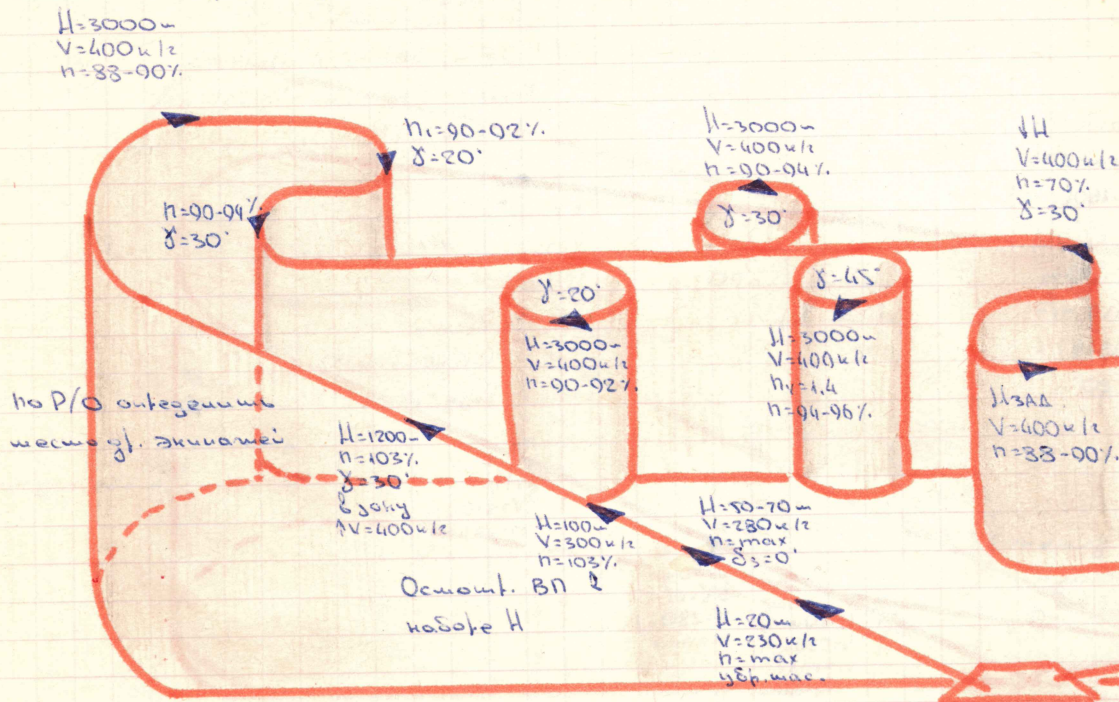 H=3000м
V=400к/г
n=88-90%
n₁=90-92%.
γ=20°
H=3000м
V=400к/г
n=90-94%
γ=30°
↓H
V=400к/г
n=70%
γ=30°
n=90-94%
γ=30°
γ=20°
H=3000м
V=400к/г
n=90-92%
γ=45°
H=3000м
V=400к/г
nу=1,4
n=94-96%.
Hзад
V=400к/г
n=88-90%.
по Р/О определить
место др. экипажей
H=1200м
n=103%
γ=30°
в зону
↑V=400к/г
H=100м
V=300к/г
n=103%
H=50-70м
V=280к/г
n=max
δз=0°
Осмотр. ВП в
наборе H
H=20м
V=230к/г
n=max
убр. шас.